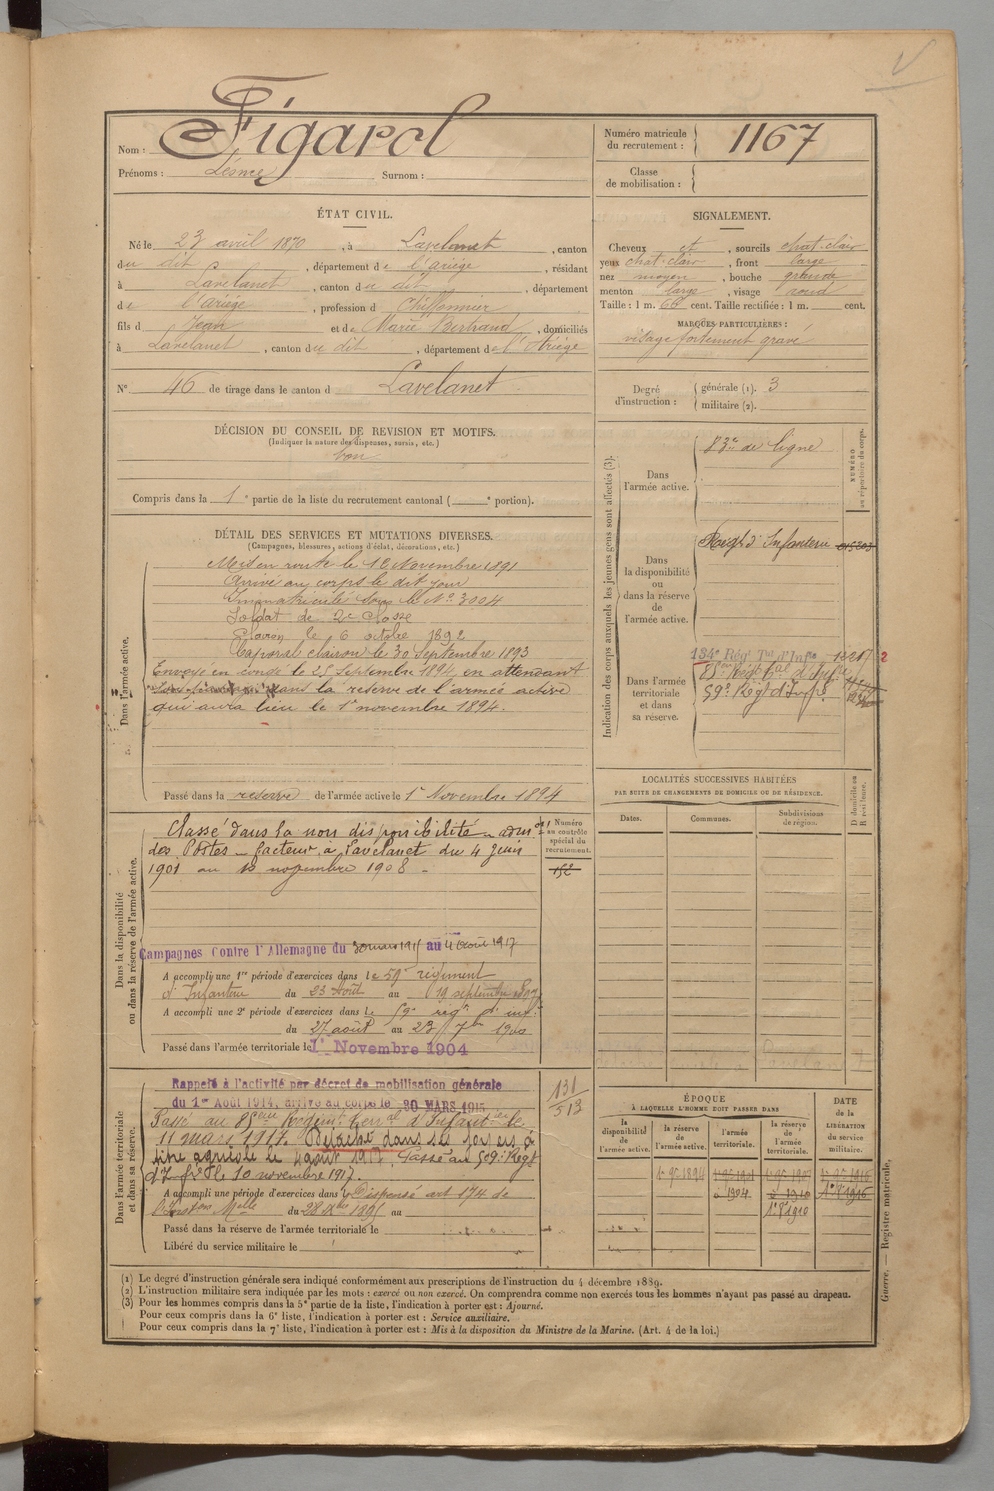 Nom : Figarol
Prénoms : Surnom :
Numéro matricule du recrutement : 1167
Classe de mobilisation :
ÉTAT CIVIL.
Né le 23 avril 1870, à Lavelanet, canton
du dit, département de l'ariège, résidant
à Lavelanet, canton du dit, département
de l'ariège, profession d Chiffonnier
fils d Jean et de Marie Bertrand, domiciliés
à Lavelanet, canton du dit, département de l'Ariège
N° 46 de tirage dans le canton d Lavelanet
SIGNALEMENT.
Cheveux et, sourcils chat-clair
yeux chat-clair, front large
nez moyen, bouche grande
menton large, visage rond
Taille : 1 m. 66 cent. Taille rectifiée : 1 m. cent.
MARQUES PARTICULIÈRES :
visage fortement gravé
Degré d'instruction : générale (1). 3
militaire (2).
DÉCISION DU CONSEIL DE REVISION ET MOTIFS.
(Indiquer la nature des dispenses, sursis, etc.)
bon
Compris dans la 1e partie de la liste du recrutement cantonal ( e portion).
Indication des corps auxquels les jeunes gens sont affectés (3).
NUMÉRO au répertoire du corps.
Dans l'armée active.
83e de ligne
Dans la disponibilité ou dans la réserve de l'armée active.
d'Infanterie
Dans l'armée territoriale et dans sa réserve.
134e Rég t Tal d'Infie
85e Régt d'Inf
59e Régt d'Infie
2
DÉTAIL DES SERVICES ET MUTATIONS DIVERSES.
(Campagnes, blessures, actions d'éclat, décorations, etc.)
Dans l'armée active.
Mis en route le 12 Novembre 1891
Arrivé au corps le dit jour
Immatriculé sous le N° 3004
Soldat de 2e Classe
Clairon le 6 octobre 1892
Caporal clairon le 30 Septembre 1893
Envoyé en congé le 25 Septembre 1894, en attendant
dans la réserve de l'armée active
qui aura lieu le 1er novembre 1894.
Passé dans la réserve de l'armée active le 1er Novembre 1894
LOCALITÉS SUCCESSIVES HABITÉES
PAR SUITE DE CHANGEMENTS DE DOMICILE OU DE RÉSIDENCE.
Dates. Communes. Subdivisions de région.
D domicile ou R résidence.
Dans la disponibilité ou dans la réserve de l'armée active.
Numéro au contrôle spécial du recrutement.
152
Classé dans la non disponibilité - adon
des Postes - facteur à Lavelanet du 4 juin
1901 au 10 novembre 1908 -
Campagnes Contre l'Allemagne du 30 mars 1915 au 4 Août 1917
A accompli une 1re période d'exercices dans le 59e régiment
d'Infanterie du 23 Août au 19 septembre 1897
A accompli une 2e période d'exercices dans le 59e régt d'inf.
du 27 août au 23 7bre 1900
Passé dans l'armée territoriale le 1er Novembre 1904
Dans l'armée territoriale et dans sa réserve.
131
513
Rappelé à l'activité par décret de mobilisation générale
du 1er Août 1914, arrivé au corps le 30 MARS 1915
Passé au 85eme Régimt terral d'Infanterie le
11 mars 1917. Détaché dans ses foyers à
titre agricole le 4 août 1917. Passé au 59e Régt
d'Infie le 10 novembre 1917.
A accompli une période d'exercices dans Dispensé art 174 de
l'Instons Melle du 28 Xbre 1895 au
Passé dans la réserve de l'armée territoriale le
Libéré du service militaire le
ÉPOQUE
À LAQUELLE L'HOMME DOIT PASSER DANS
la disponibilité de l'armée active. la réserve de l'armée active. l'armée territoriale. la réserve de l'armée territoriale.
DATE de la LIBÉRATION du service militaire.
1er 9bre 1894
1904
1910
1916
(1) Le degré d'instruction générale sera indiqué conformément aux prescriptions de l'instruction du 4 décembre 1889.
(2) L'instruction militaire sera indiquée par les mots : exercé ou non exercé. On comprendra comme non exercés tous les hommes n'ayant pas passé au drapeau.
(3) Pour les hommes compris dans la 5e partie de la liste, l'indication à porter est : Ajourné.
Pour ceux compris dans la 6e liste, l'indication à porter est : Service auxiliaire.
Pour ceux compris dans la 7e liste, l'indication à porter est : Mis à la disposition du Ministre de la Marine. (Art. 4 de la loi.)
Guerre. — Registre matricule,